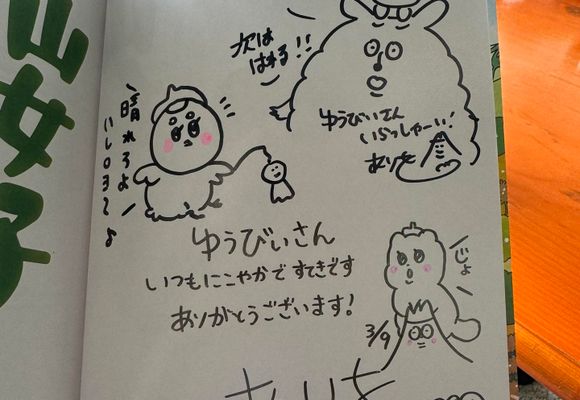 山女
次は
はれる!!
ゆうびぃさん
いらっしゃーい!
晴れろよ
ゆうびぃさん
いつもにこやかですてきです
ありがとうございます!
じょ
3/9